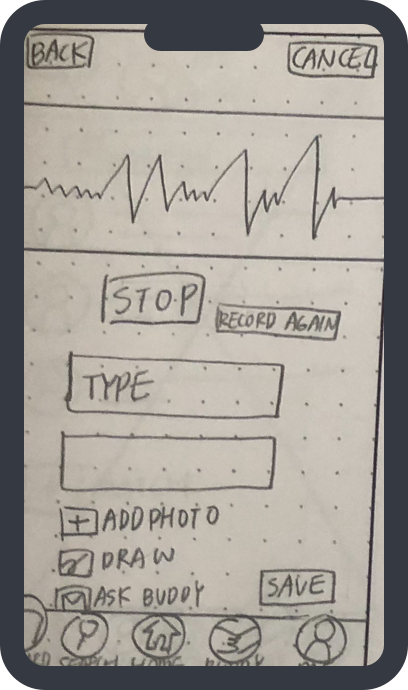 BACK
CANCEL
STOP
RECORD AGAIN
TYPE
ADD PHOTO
DRAW
ASK BUDDY
SAVE
SEARCH HOME